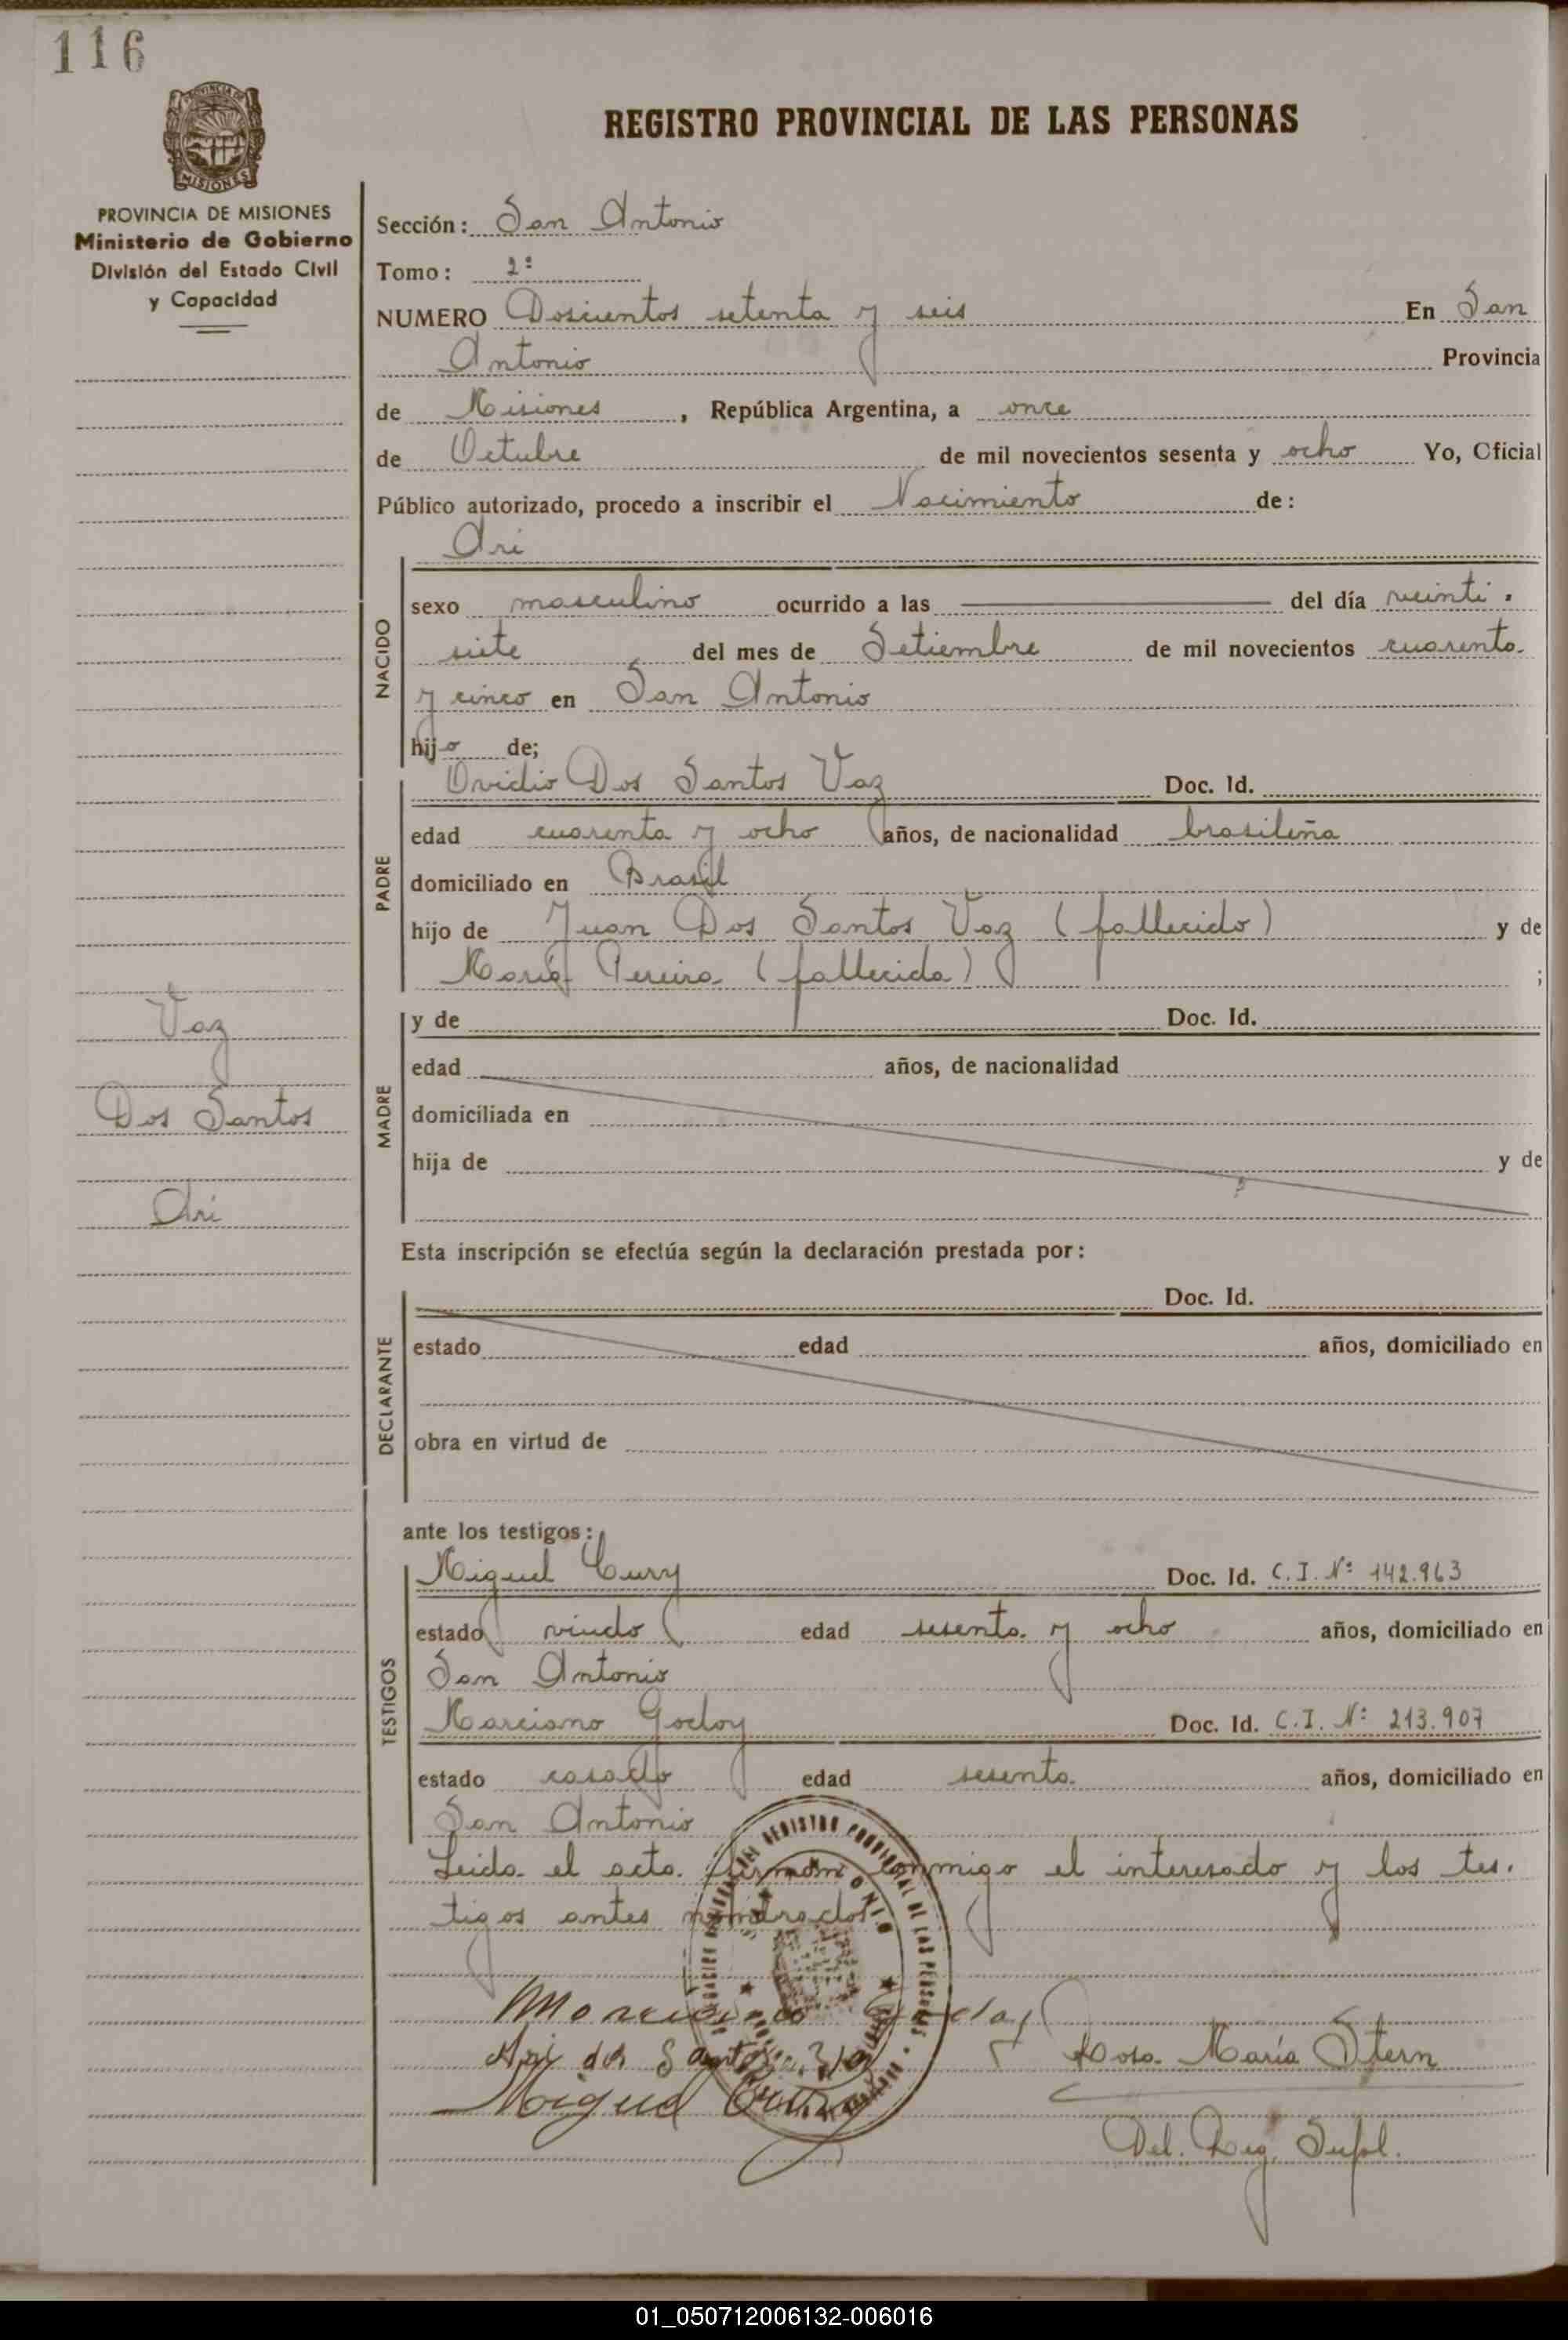 116
PROVINCIA DE
MISIONES
REGISTRO PROVINCIAL DE LAS PERSONAS
PROVINCIA DE MISIONES
Ministerio de Gobierno
División del Estado Civil
y Capacidad
Sección: San Antonio
Tomo: 2º
NUMERO Doscientos setenta y seis En San
Antonio Provincia
de Misiones, República Argentina, a once
de Octubre de mil novecientos sesenta y ocho Yo, Oficial
Público autorizado, procedo a inscribir el Nacimiento de:
Ari
NACIDO
sexo masculino ocurrido a las del día veinti
siete del mes de Setiembre de mil novecientos cuarenta
y cinco en San Antonio
hijo de;
PADRE
Ovidio Dos Santos Vaz Doc. Id.
edad cuarenta y ocho años, de nacionalidad brasileña
domiciliado en Brasil
hijo de Juan Dos Santos Vaz (fallecido) y de
María Pereira (fallecida) ;
Vaz
Dos Santos
Ari
MADRE
y de Doc. Id.
edad años, de nacionalidad
domiciliada en
hija de y de
Esta inscripción se efectúa según la declaración prestada por:
DECLARANTE
Doc. Id.
estado edad años, domiciliado en
obra en virtud de
ante los testigos:
TESTIGOS
Miguel Cury Doc. Id. C.I. Nº 142.963
estado viudo edad sesenta y ocho años, domiciliado en
San Antonio
Marciano Godoy Doc. Id. C.I. Nº 213.907
estado casado edad sesenta años, domiciliado en
San Antonio
Leida el acta firman conmigo el interesado y los tes.
tigos antes nombrados
REGISTRO PROVINCIAL DE LAS PERSONAS
Marciano Godoy
Ari dos Santos Vaz
Rosa María Stern
Miguel Cury
Del. Reg. Supl.
01_050712006132-006016